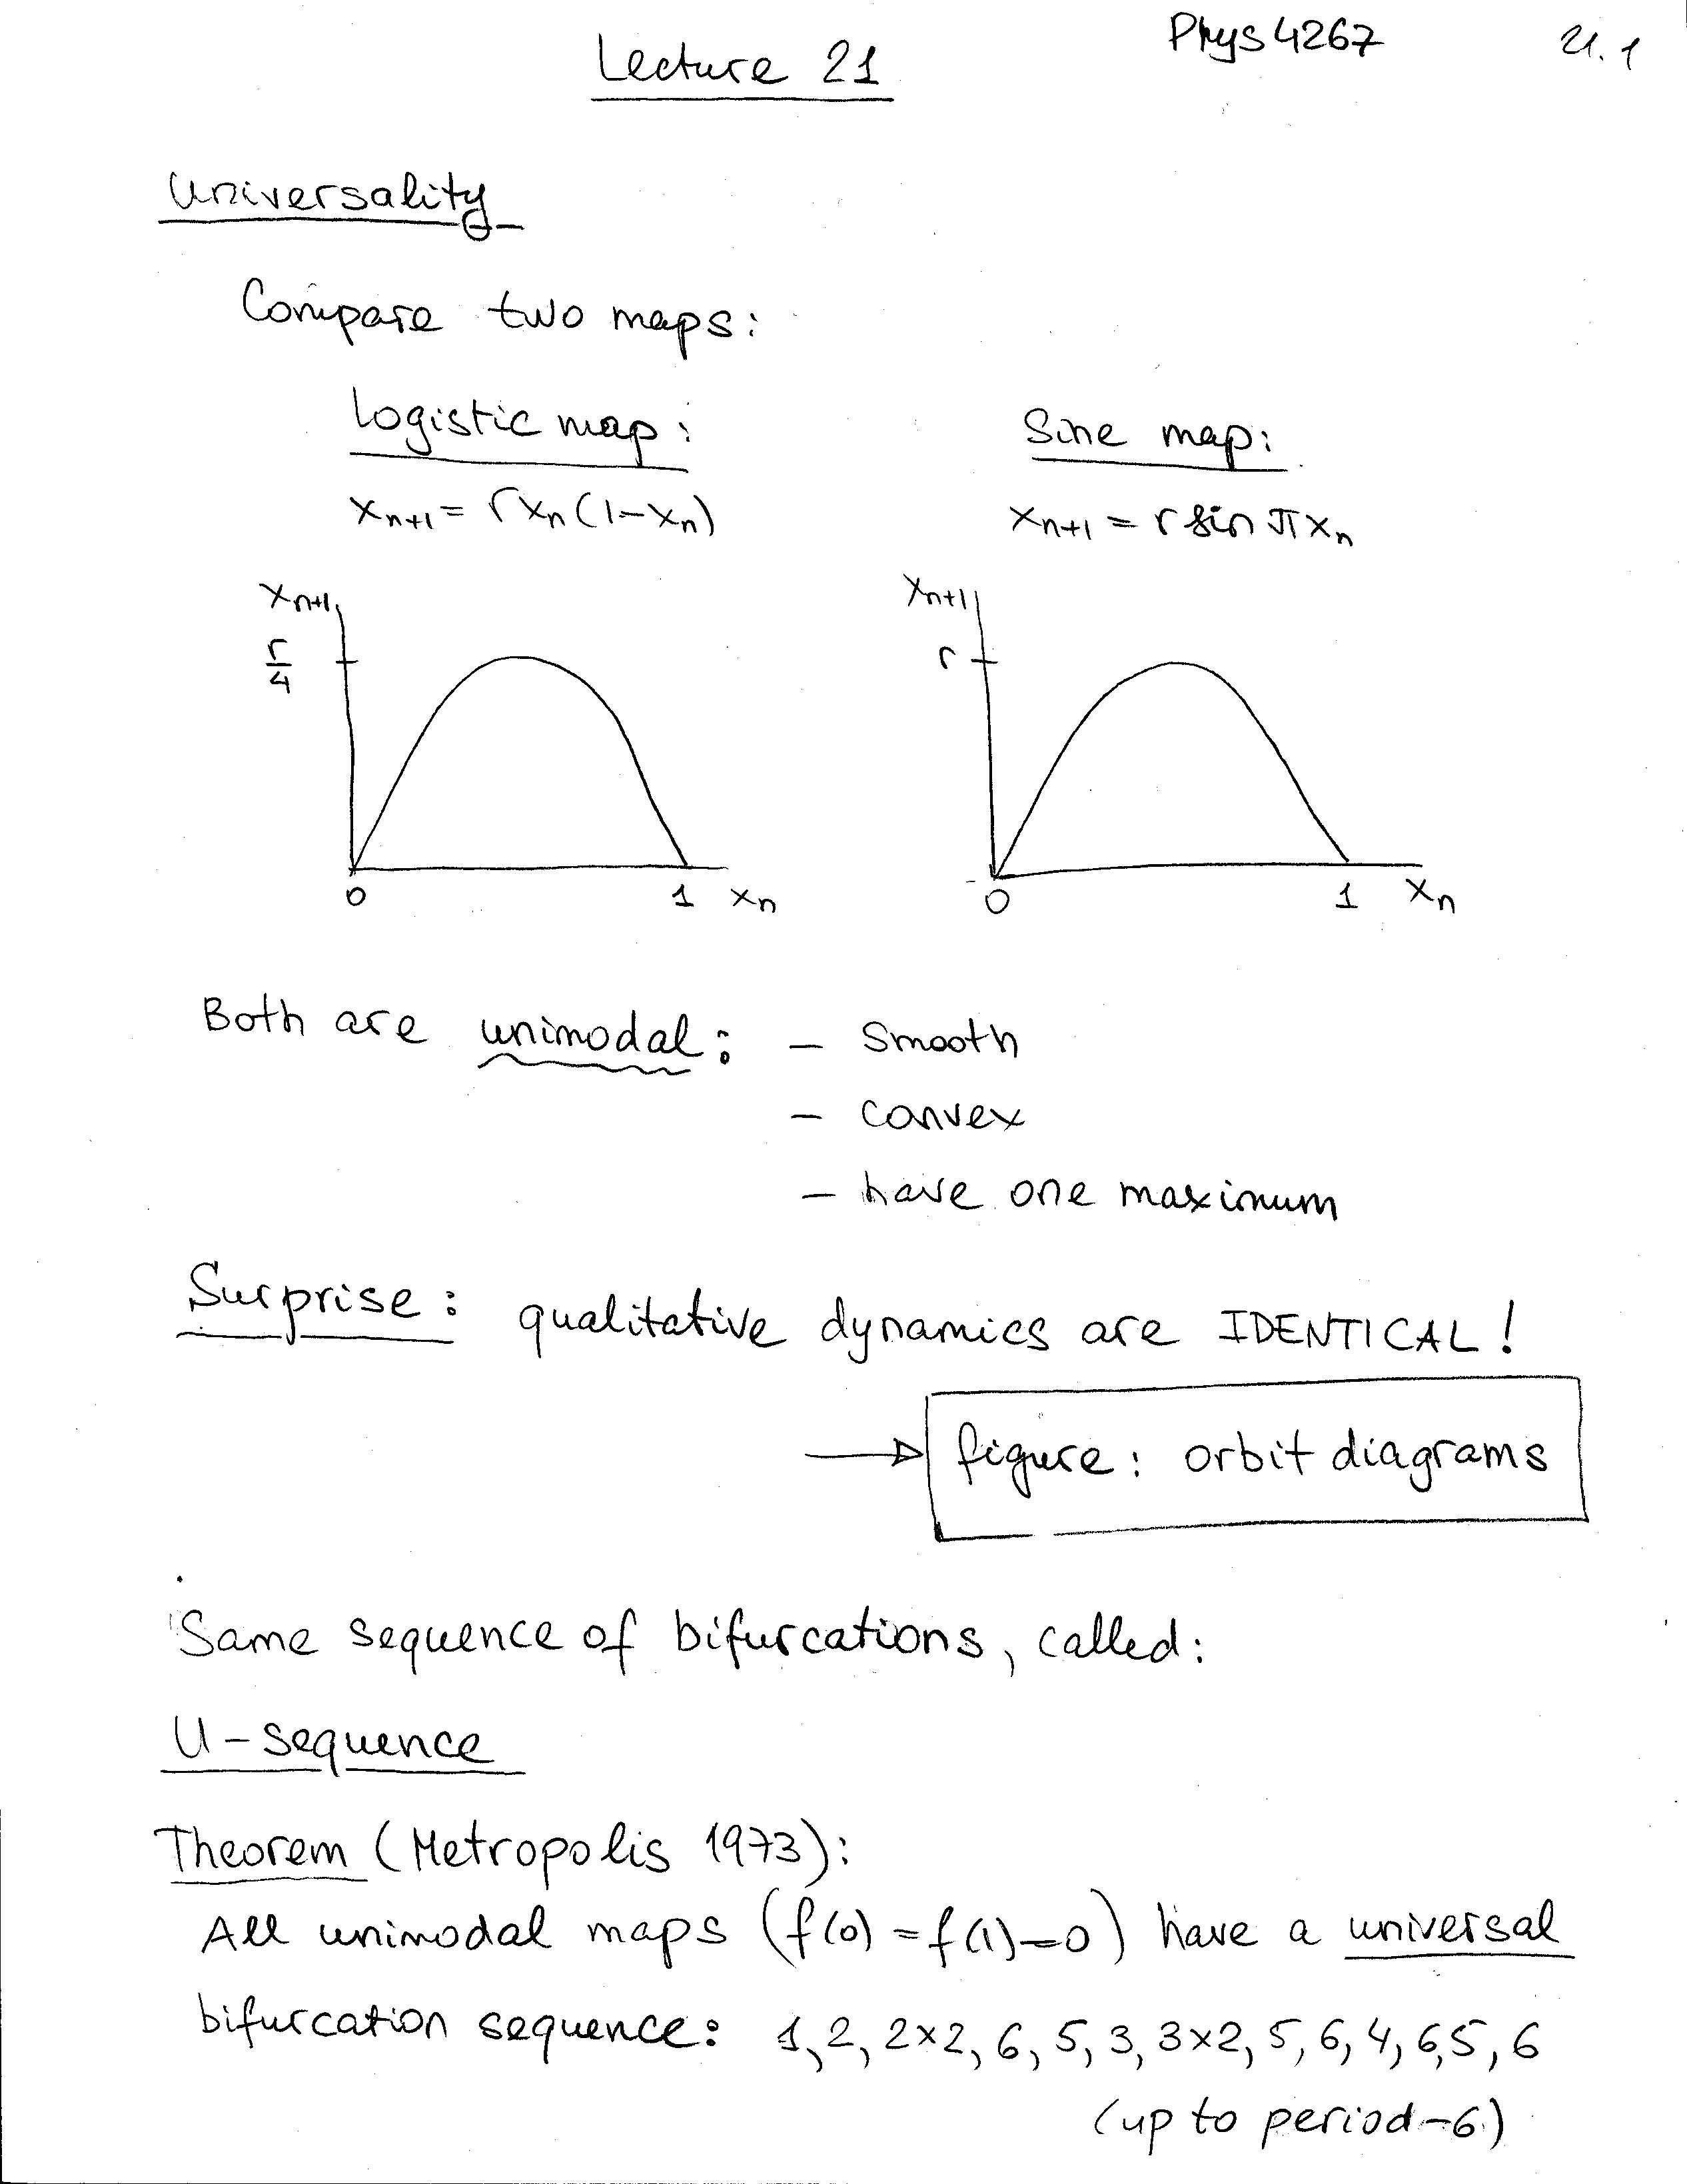 Lecture 21
Phys 4267
21.1
Universality
Compare two maps:
Logistic map:
Sine map:
x_{n+1} = r x_n (1 - x_n)
x_{n+1} = r sin π x_n
x_{n+1}
r/4
0
1
x_n
x_{n+1}
r
0
1
x_n
Both are unimodal: – smooth
– convex
– have one maximum
Surprise: qualitative dynamics are IDENTICAL!
figure: orbit diagrams
Same sequence of bifurcations, called:
U-sequence
Theorem (Metropolis 1973):
All unimodal maps (f(0) = f(1) = 0) have a universal
bifurcation sequence: 1, 2, 2×2, 6, 5, 3, 3×2, 5, 6, 4, 6, 5, 6
(up to period-6)